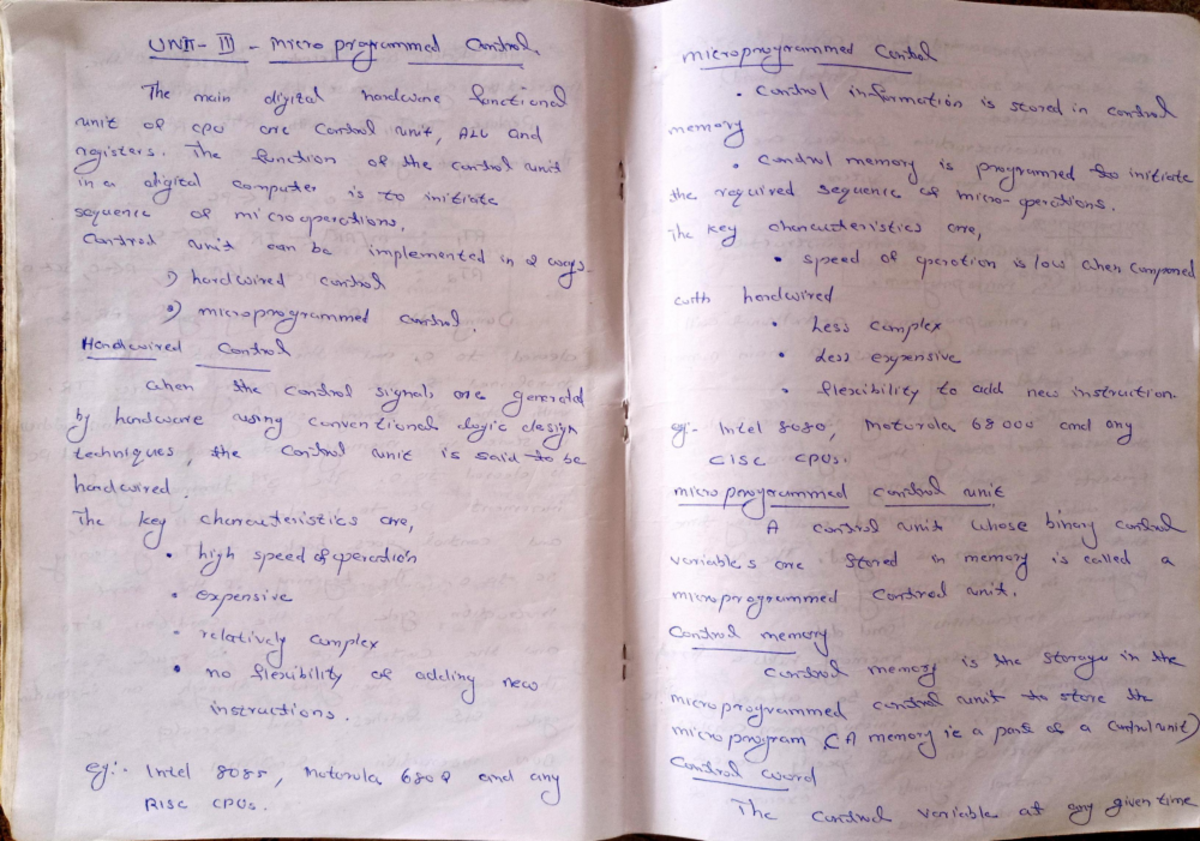 UNIT- III - Micro programmed Control.
The main digital hardware functional
unit of CPU are Control unit, ALU and
registers. The function of the control unit
in a digital computer is to initiate
sequence of microoperations.
Control unit can be implemented in 2 ways.
1) hardwired control
2) microprogrammed control.
Hardwired Control
When the control signals are generated
by hardware using conventional logic design
techniques, the control unit is said to be
hardwired.
The key characteristics are,
• high speed of operation
• expensive
• relatively complex
• no flexibility of adding new
instructions.
eg:- Intel 8085, Motorola 6802 and any
RISC CPUs.
microprogrammed Control
• Control information is stored in control
memory
• Control memory is programmed to initiate
the required sequence of micro-operations.
The key characteristics are,
• speed of operation is low when compared
with hardwired
• Less complex
• Less expensive
• flexibility to add new instruction.
eg:- Intel 8080, Motorola 68000 and any
CISC CPUs.
microprogrammed control unit
A control unit whose binary control
variables are stored in memory is called a
microprogrammed control unit.
Control memory
Control memory is the storage in the
microprogrammed control unit to store the
microprogram (A memory ie a part of a control unit)
Control word
The control variable at any given time